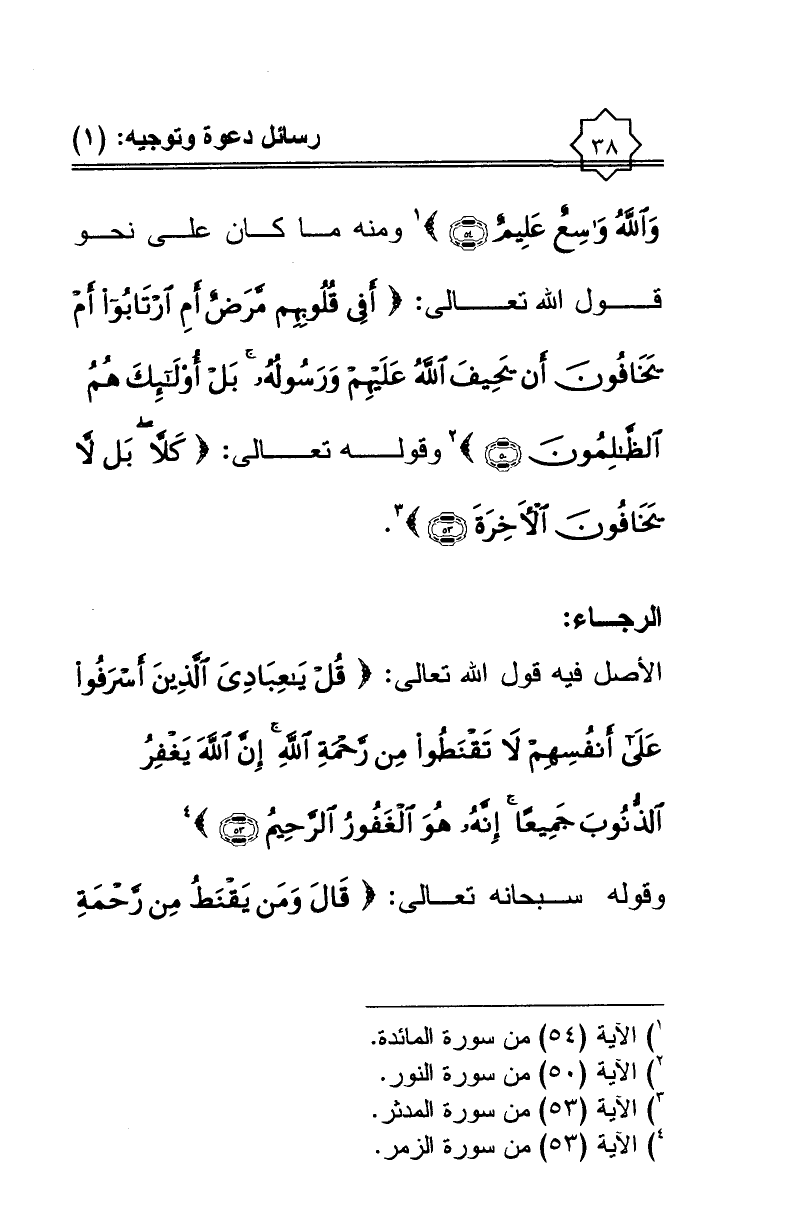 ٣٨
رسائل دعوة وتوجيه: (١)
وَٱللَّهُ وَٰسِعٌ عَلِيمٌ ۝٥٤ ﴾١ ومنه ما كان على نحو
قول الله تعالى: ﴿ أَفِى قُلُوبِهِم مَّرَضٌ أَمِ ٱرْتَابُوٓا۟ أَمْ
يَخَافُونَ أَن يَحِيفَ ٱللَّهُ عَلَيْهِمْ وَرَسُولُهُۥ ۚ بَلْ أُو۟لَـٰٓئِكَ هُمُ
ٱلظَّـٰلِمُونَ ۝٥٠ ﴾٢ وقوله تعالى: ﴿ كَلَّا ۖ بَل لَّا
يَخَافُونَ ٱلْـَٔاخِرَةَ ۝٥٣ ﴾٣.
الرجاء:
الأصل فيه قول الله تعالى: ﴿ قُلْ يَـٰعِبَادِىَ ٱلَّذِينَ أَسْرَفُوا۟
عَلَىٰٓ أَنفُسِهِمْ لَا تَقْنَطُوا۟ مِن رَّحْمَةِ ٱللَّهِ ۚ إِنَّ ٱللَّهَ يَغْفِرُ
ٱلذُّنُوبَ جَمِيعًا ۚ إِنَّهُۥ هُوَ ٱلْغَفُورُ ٱلرَّحِيمُ ۝٥٣ ﴾٤
وقوله سبحانه تعالى: ﴿ قَالَ وَمَن يَقْنَطُ مِن رَّحْمَةِ
١) الآية (٥٤) من سورة المائدة.
٢) الآية (٥٠) من سورة النور.
٣) الآية (٥٣) من سورة المدثر.
٤) الآية (٥٣) من سورة الزمر.